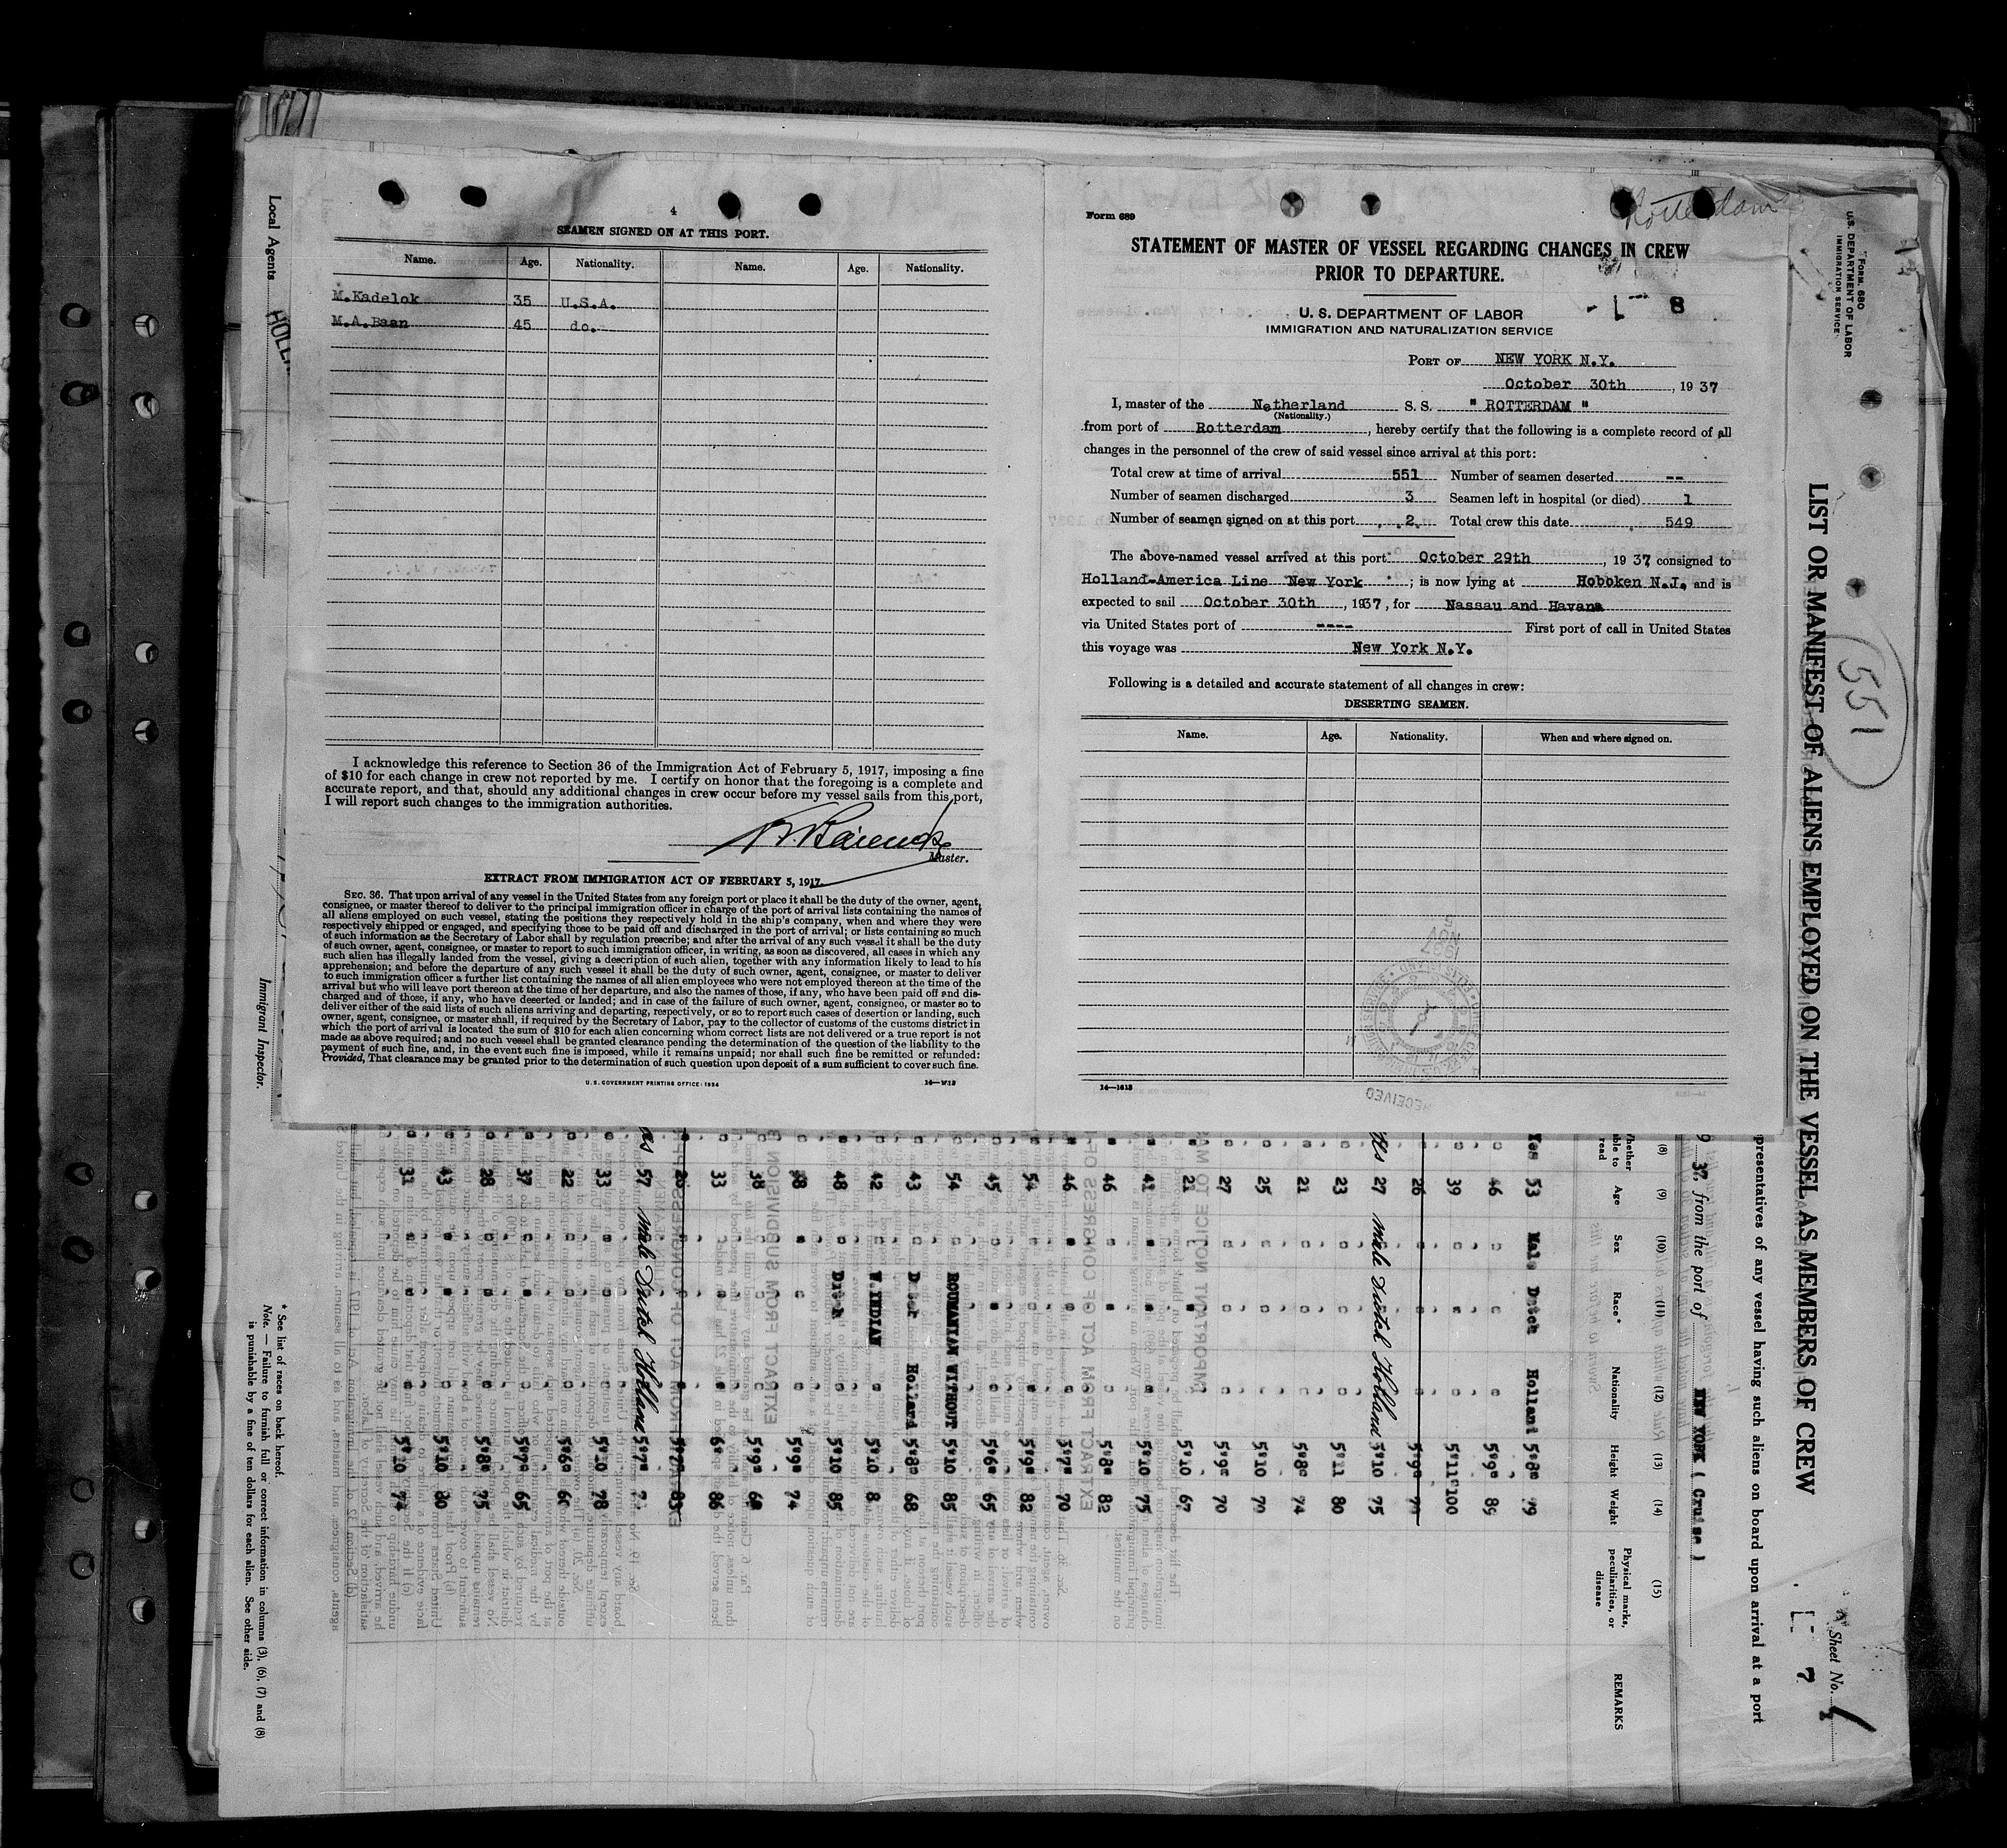 4
SEAMEN SIGNED ON AT THIS PORT.
Name. Age. Nationality. Name. Age. Nationality.
M.Kadelok 35 U.S.A.
M.A.Baan 45 do.
I acknowledge this reference to Section 36 of the Immigration Act of February 5, 1917, imposing a fine
of $10 for each change in crew not reported by me. I certify on honor that the foregoing is a complete and
accurate report, and that, should any additional changes in crew occur before my vessel sails from this port,
I will report such changes to the immigration authorities.
Master.
EXTRACT FROM IMMIGRATION ACT OF FEBRUARY 5, 1917.
SEC. 36. That upon arrival of any vessel in the United States from any foreign port or place it shall be the duty of the owner, agent,
consignee, or master thereof to deliver to the principal immigration officer in charge of the port of arrival lists containing the names of
all aliens employed on such vessel, stating the positions they respectively hold in the ship's company, when and where they were
respectively shipped or engaged, and specifying those to be paid off and discharged in the port of arrival; or lists containing so much
of such information as the Secretary of Labor shall by regulation prescribe; and after the arrival of any such vessel it shall be the duty
of such owner, agent, consignee, or master to report to such immigration officer, in writing, as soon as discovered, all cases in which any
such alien has illegally landed from the vessel, giving a description of such alien, together with any information likely to lead to his
apprehension; and before the departure of any such vessel it shall be the duty of such owner, agent, consignee, or master to deliver
to such immigration officer a further list containing the names of all alien employees who were not employed thereon at the time of the
arrival but who will leave port thereon at the time of her departure, and also the names of those, if any, who have been paid off and dis-
charged and of those, if any, who have deserted or landed; and in case of the failure of such owner, agent, consignee, or master so to
deliver either of the said lists of such aliens arriving and departing, respectively, or so to report such cases of desertion or landing, such
owner, agent, consignee, or master shall, if required by the Secretary of Labor, pay to the collector of customs of the customs district in
which the port of arrival is located the sum of $10 for each alien concerning whom correct lists are not delivered or a true report is not
made as above required; and no such vessel shall be granted clearance pending the determination of the question of the liability to the
payment of such fine, and, in the event such fine is imposed, while it remains unpaid; nor shall such fine be remitted or refunded:
Provided, That clearance may be granted prior to the determination of such question upon deposit of a sum sufficient to cover such fine.
U.S. GOVERNMENT PRINTING OFFICE: 1934
Form 689
Rotterdam
STATEMENT OF MASTER OF VESSEL REGARDING CHANGES IN CREW
PRIOR TO DEPARTURE.
8
U. S. DEPARTMENT OF LABOR
IMMIGRATION AND NATURALIZATION SERVICE
PORT OF NEW YORK N.Y.
October 30th, 1937
I, master of the Netherland S. S. " ROTTERDAM "
(Nationality.)
from port of Rotterdam, hereby certify that the following is a complete record of all
changes in the personnel of the crew of said vessel since arrival at this port:
Total crew at time of arrival 551 Number of seamen deserted --
Number of seamen discharged 3 Seamen left in hospital (or died) 1
Number of seamen signed on at this port 2 Total crew this date 549
The above-named vessel arrived at this port October 29th, 1937 consigned to
Holland-America Line New York; is now lying at Hoboken N.J. and is
expected to sail October 30th, 1937, for Nassau and Havana
via United States port of ---- First port of call in United States
this voyage was New York N.Y.
Following is a detailed and accurate statement of all changes in crew:
DESERTING SEAMEN.
Name. Age. Nationality. When and where signed on.
14—1613
RECEIVED
Local Agents
Immigrant Inspector.
Form 680
U.S. DEPARTMENT OF LABOR
IMMIGRATION SERVICE
551
LIST OR MANIFEST OF ALIENS EMPLOYED ON THE VESSEL AS MEMBERS OF CREW
Sheet No. 1
7
presentatives of any vessel having such aliens on board upon arrival at a port
37, from the port of NEW YORK ( Cruise )
(8) (9) (10) (11) (12) (13) (14) (15)
Whether able to read Age Sex Race* Nationality Height Weight Physical marks, peculiarities, or disease REMARKS
Yes 53 Male Dutch Holland 5'8" 79
46 5'9" 89
39 5'11" 100
26 5'9"
27 male Dutch Holland 5'10 75
23 5'11 80
21 5'8" 74
25 5'10 70
27 5'9" 70
21 5'10 67
41 5'10 75
46 5'8" 82
46 5'7" 70
54 5'9" 82
45 5'6" 65
54 ROUMANIAN WITHOUT 5'10 85
43 Dutch Holland 5'8" 68
42 W.INDIAN 5'10 8
48 Dutch 5'10 85
5'9" 74
38 5'9" 68
33 6" 86
57 male Dutch Holland 5'7"
33 5'10 78
22 5'6" 60
37 5'7" 65
28 5'8" 75
43 5'10 80
31 5'10 74
* See list of races on back hereof.
Note. — Failure to furnish full or correct information in columns (3), (6), (7) and (8)
is punishable by a fine of ten dollars for each alien. See other side.